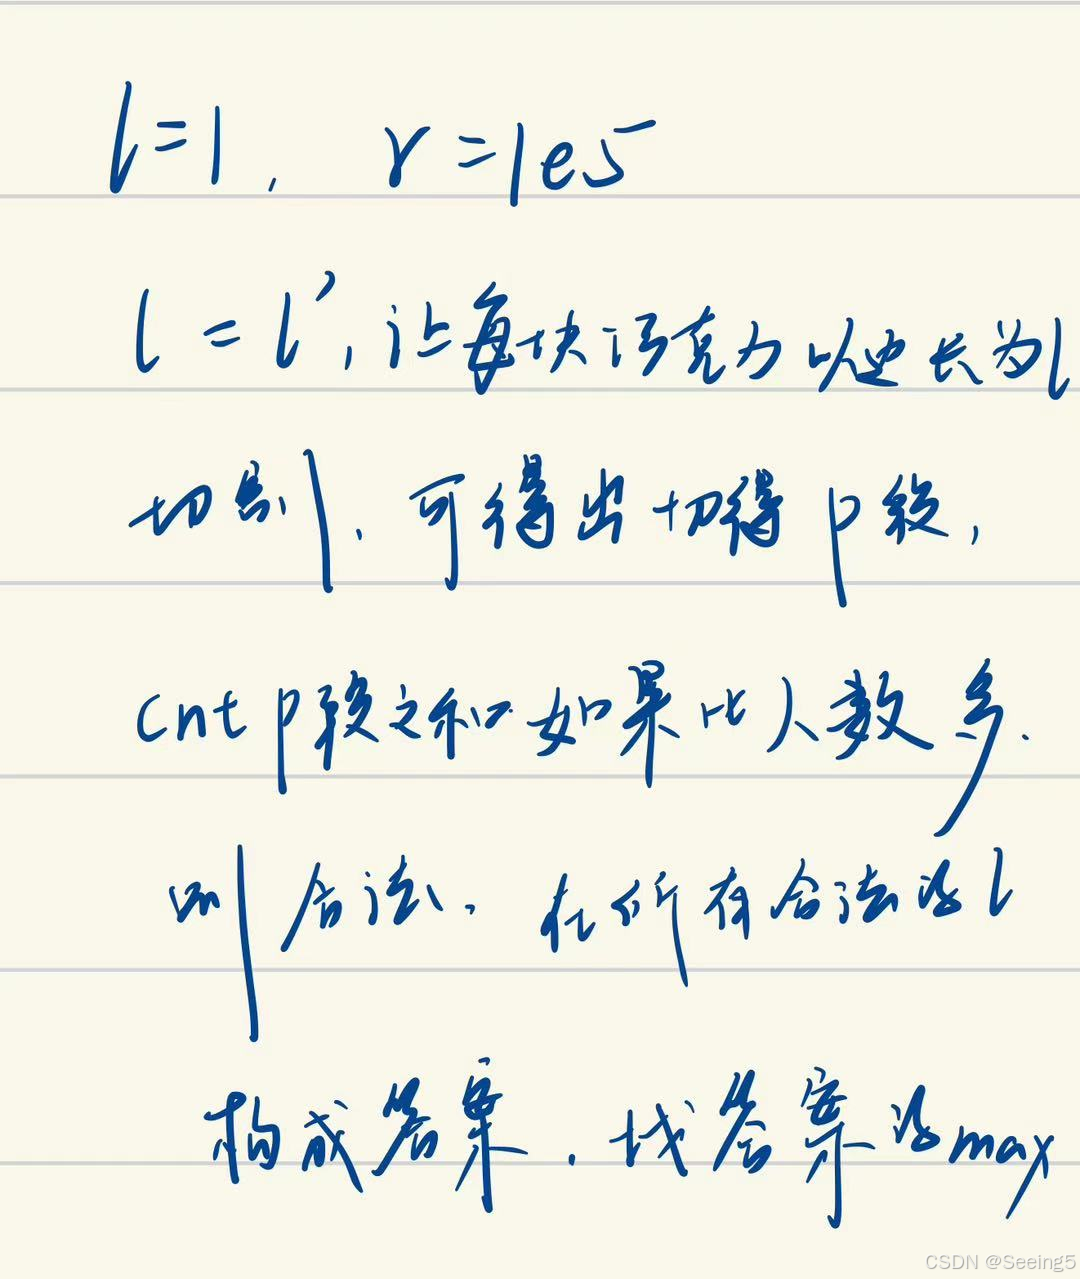 l=1, r=1e5
l=l',让每块巧克力以边长为l
切割,可得出切得p段,
cnt p段之和如果比人数多.
则合法,在所有合法的l
构成答案,找答案的max
CSDN @Seeing5